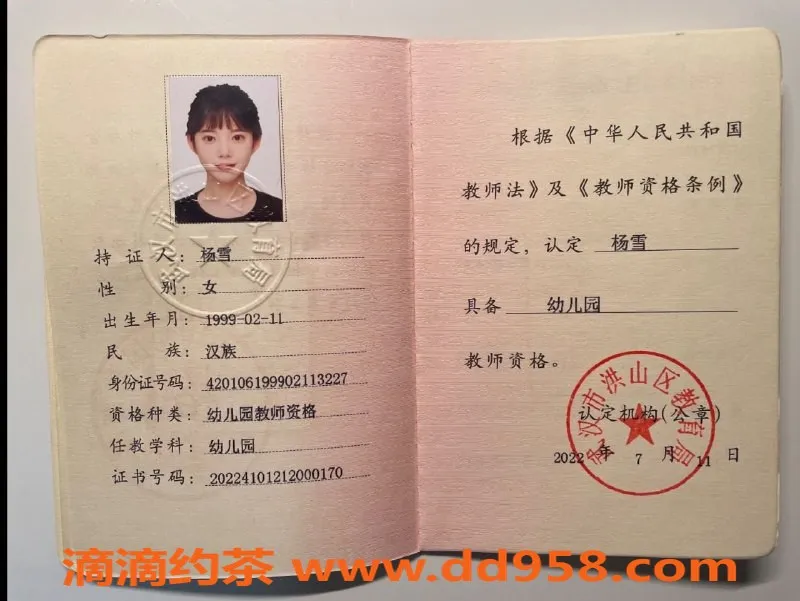 持证人：杨雪
性别：女
出生年月：1999-02-11
民族：汉族
身份证号码：420106199902113227
资格种类：幼儿园教师资格
任教学科：幼儿园
证书号码：20224101212000170
根据《中华人民共和国
教师法》及《教师资格条例》
的规定，认定 杨雪
具备 幼儿园
教师资格。
武汉市洪山区教育局
认定机构(公章)
2022 年 7 月 11 日
滴滴约茶 www.dd958.com